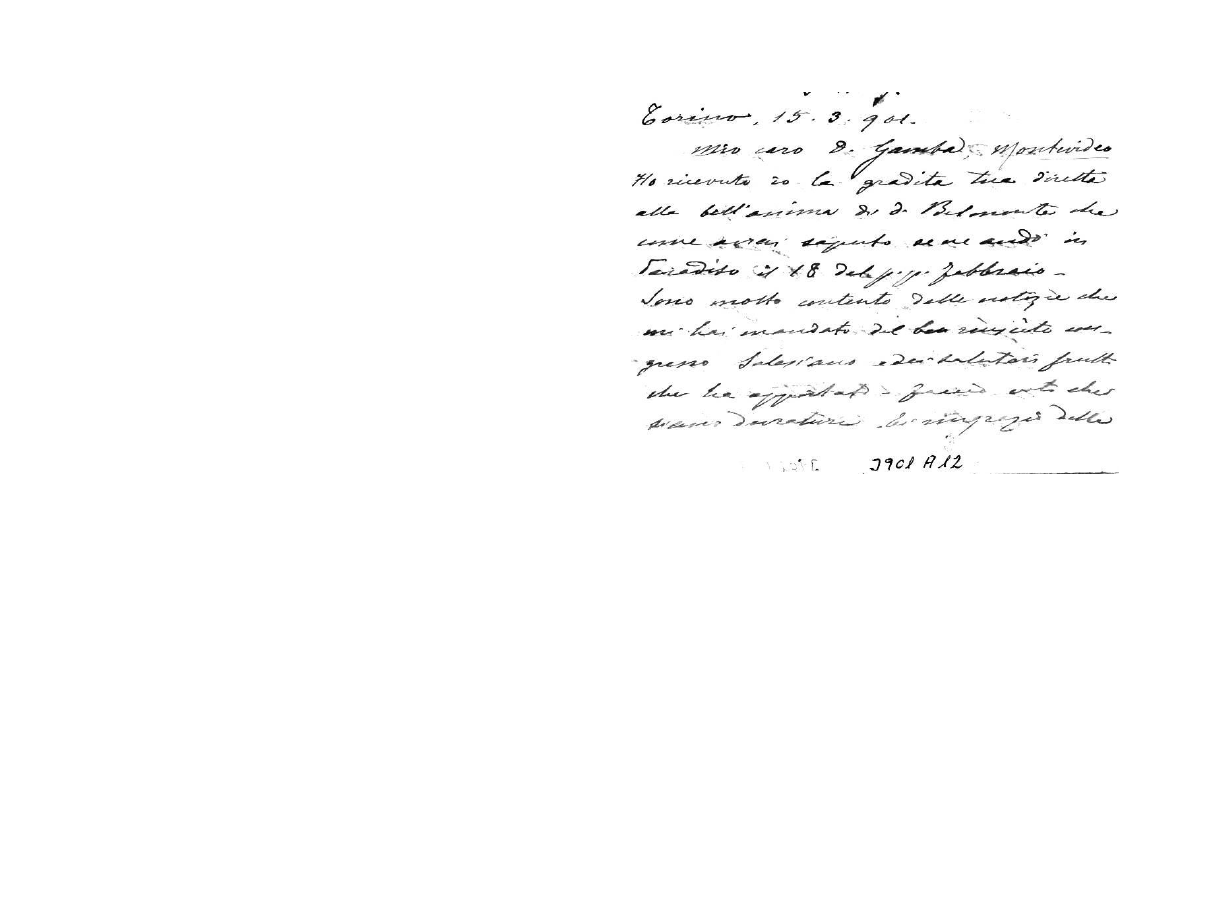 Torino, 15. 3. 901.
Mio caro D. Gamba, Montevideo
Ho ricevuto io la gradita tua diretta
alla bell'anima di d. Belmonte che
come avrai saputo se ne andò in
Paradiso il 18 del p.p. febbraio -
Sono molto contento delle notizie che
mi hai mandato del ben riuscito con-
gresso Salesiano e dei salutari frutti
che ha apportati - faccio voti che
siano duraturi. Ti ringrazio delle
1901 A 12